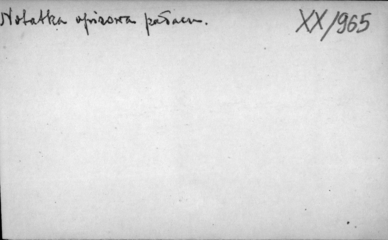 Notatka opisowa pałacu.
XX/965